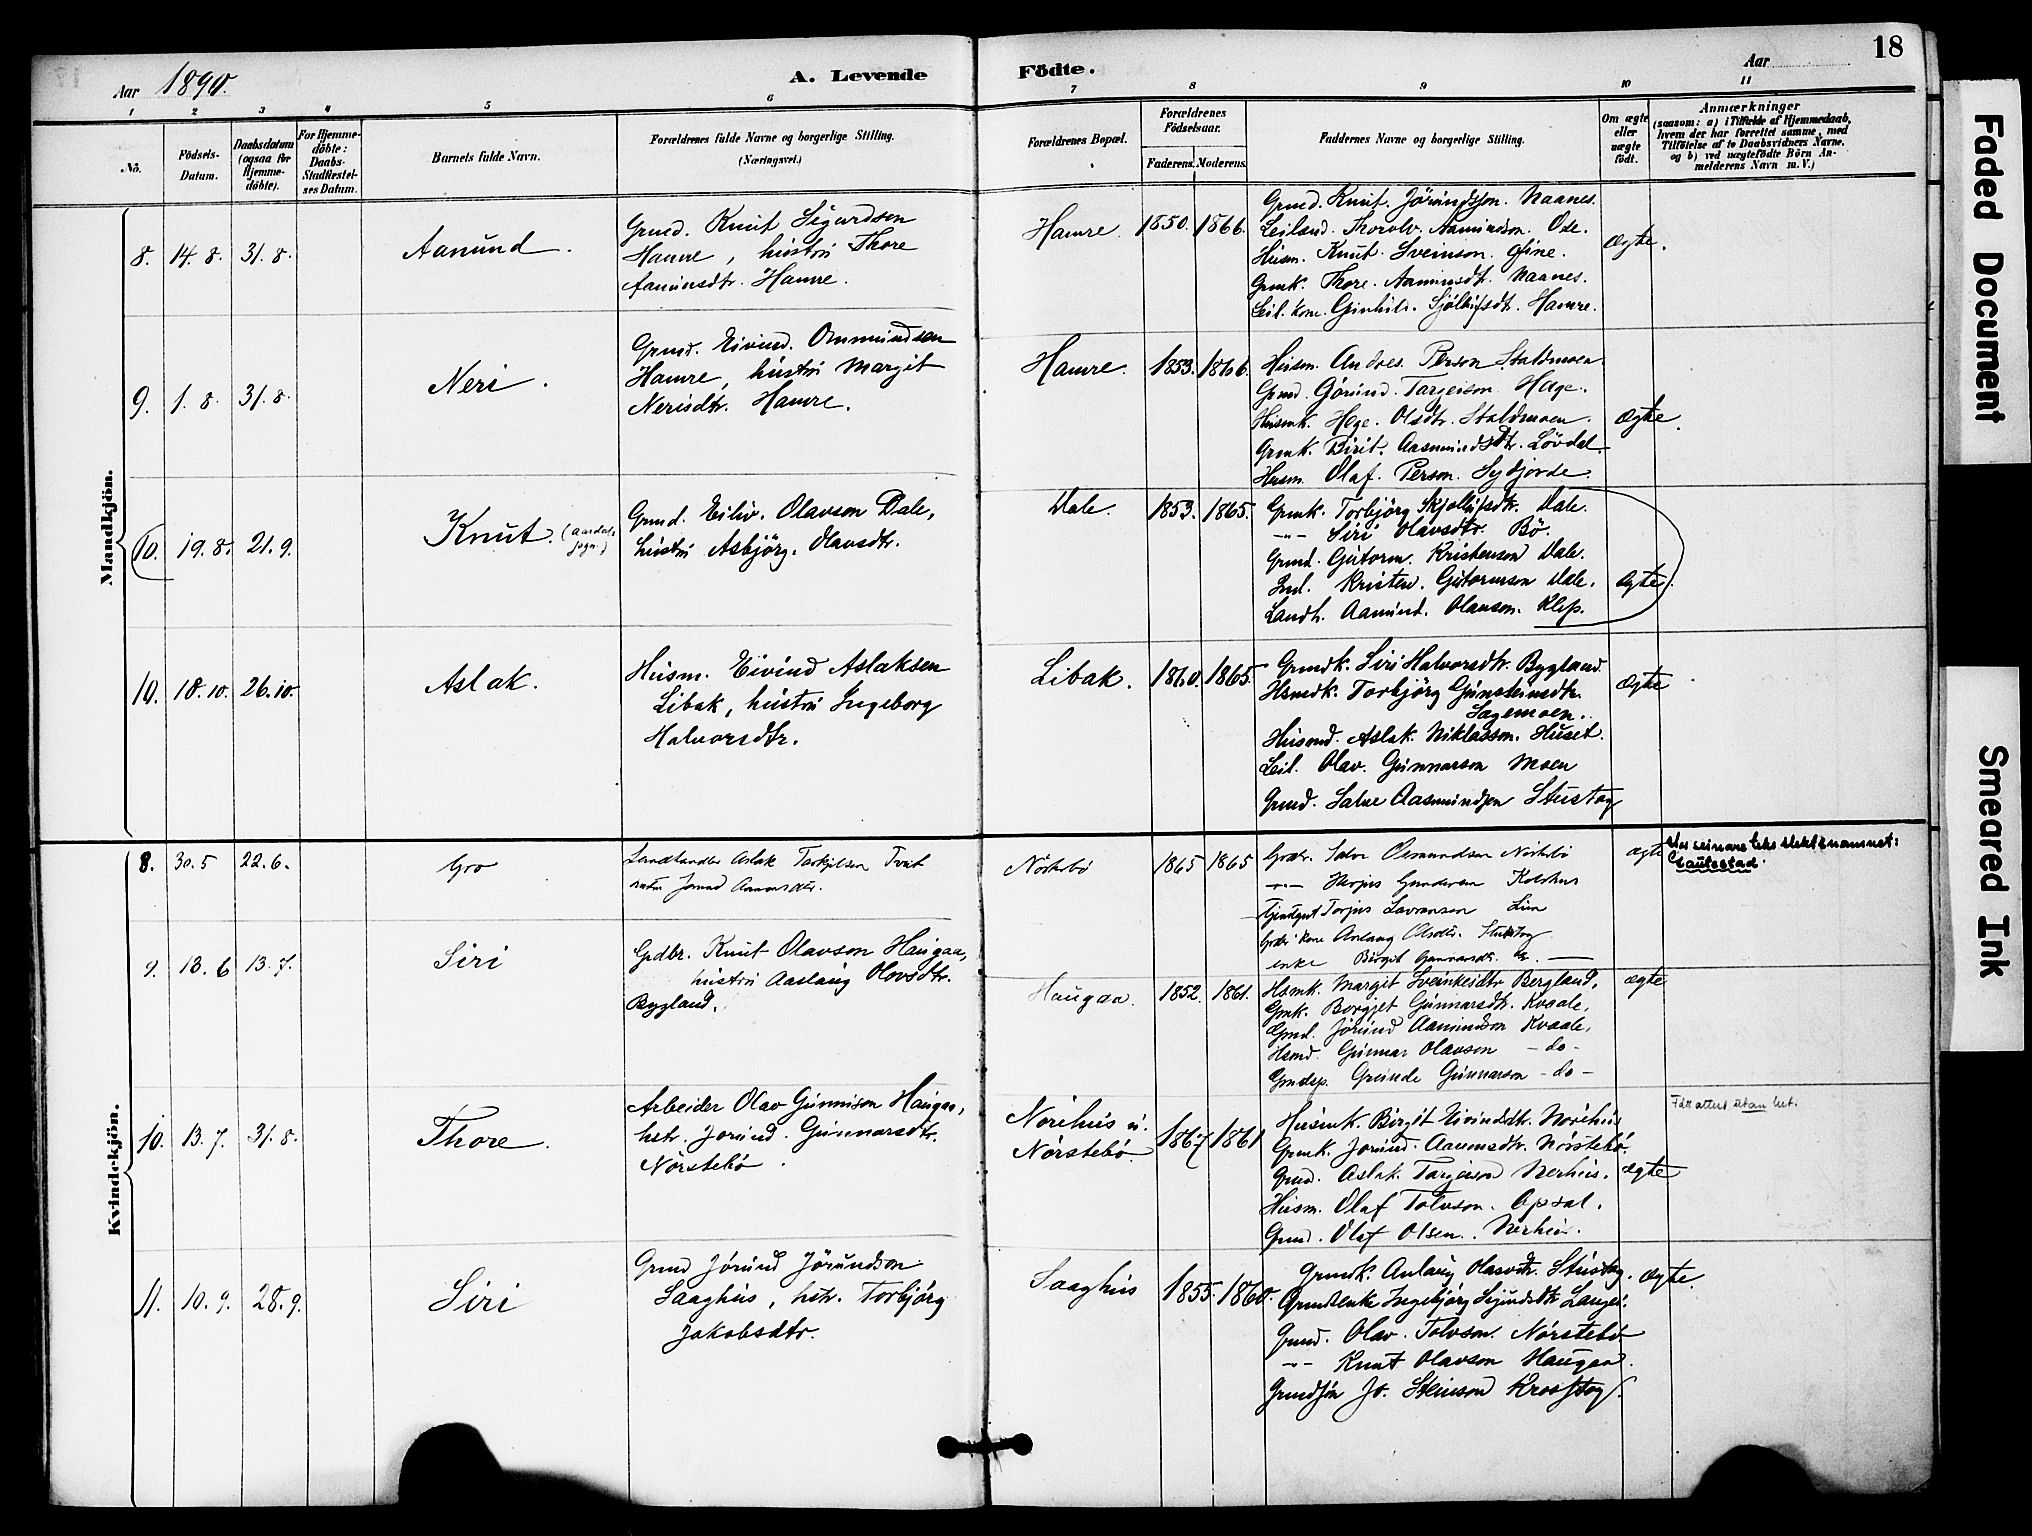 18
Aar 1890.
A. Levende Födte.
Aar
1 2 3 4 5 6 7 8 9 10 11
No.
Födsels-Datum.
Daabsdatum (ogsaa for Hjemme-döbte).
For Hjemme-döbte: Daabs-Stadfæstel-ses Datum.
Barnets fulde Navn.
Forældrenes fulde Navne og borgerlige Stilling.
(Næringsvei.)
Forældrenes Bopæl.
Forældrenes Födselsaar.
Faderens. Moderens.
Faddernes Navne og borgerlige Stilling.
Om ægte eller uægte født.
Anmærkninger
(saasom: a) i Tilfælde af Hjemmedaab,
hvem der har forrettet samme, med
Tilföielse af to Daabsvidners Navne.
og b) ved uægtefödte Börn An-
melderens Navn m. V.)
Mandkjön.
8. 14. 8. 31. 8. Aanund.
Grmd. Knut Sigurdson
Hamre, hustru Thore
Aanunsdtr. Hamre.
Hamre 1850. 1866.
Grmd. Knut. Jörundsson Naanes.
Leiland. Thorolv. Aamundson. Ose.
Husm. Knut. Sveinson.
Grmk. Thore. Aamunsdt. Naanes.
Leil. kone. Gunhild. Sjölhifsdt. Hamre.
Ægte.
9. 1. 8. 31. 8. Neri.
Grmd. Eivind. Ommundsen
Hamre, hustru Margit
Nerisdtr. Hamre.
Hamre. 1853. 1866.
Husm. Andres. Person Staldmoen.
Grmd. Görund. Targeison. Hage.
Husmk. Hege. Olsdtr. Staldmoen.
Grmk. Birit. Aasmundsdtr. Lövdal.
Husm. Olaf. Person. Sydjorde.
Ægte.
10. 19. 8. 21. 9. Knut. (Aardals sogn.)
Grmd. Eiliv. Olavson Dale,
hustru Asbjörg. Olavsdtr.
Dale. 1853. 1865.
Grmk. Torbjörg Skjollifsdtr. Dale.
-"- Siri Olavsdtr. Bö.
Grmd. Gutorm. Kristenson Dale.
Ind. Kristen. Gutormson Dale.
Landh. Aamund. Olavson. Klep.
Ægte.
10. 18. 10. 26. 10. Aslak.
Husm. Eivind Aslaksen
Libak, hustru Ingeborg
Halvorsdtr.
Libak. 1860. 1865.
Grmdk. Siri Halvorsdtr. Bygland
Hsmdk. Torbjörg Gunsteinsdtr.
Sagemoen.
Husmd. Aslak. Niklasson. Huset.
Leil. Olav. Gunnarson Moen
Grmd. Salve Aasmundsen Stustog
Ægte
Kvindekjön.
8. 30. 5 22. 6. Gro
Landhandler Aslak Torkjelsen Tveit
Jorund Aanonsdtr.
Nörstebö 1865 1865
Grdbr. Salve Osmundsen Nörstebö
-"- Herjus Gundersen
Torjus Lavransson Lien
Grdbr kone Anlaug Olsdtr. Stustog
enke Birgit Gunnarsdtr.
ægte
slektsnamnet:
Lautestad.
9. 13. 6 13. 7. Siri
Grdbr. Knut Olavson Haugaa,
hustru Aaslaug Olovsdtr.
Bygland.
Haugaa. 1852. 1861.
Hsmk. Margit Sveinkeidtr Bergland,
Gmk. Borgjet Gunnarsdtr. Kvaale,
Gmd. Jörund Aamundson Kvaale,
Hsmd. Gunnar Olavson -do-
Gmdsp. Greunde Gunnarson -do-
ægte
10. 13. 7. 31. 8. Thore.
Arbeider Olav Gunnison Haugaa,
hstr. Jorund. Gunnarsdtr.
Nörstebö.
Norehus
Nörstebö. 1867 1861
Husmk. Birgit Eivindsdtr. Norehus
Grmk. Jorund. Aanunsdtr. Nörstebö.
Grmd. Aslak. Targeison Nerhus.
Husm. Olaf Tolvson. Opsal.
Grmd. Olaf Olsen. Nerhus.
ægte
Fått attest utan
11. 10. 9. 28. 9. Siri
Grmd Jörund Jörundson
Saaghus, hstr. Torbjörg
Jakobsdtr.
Saaghus 1855. 1860.
Grmdk. Anlaug Olavsdtr. Stustog.
Grmdsenke Ingebjörg Sjundsdtr Langei.
Grmd. Olav. Tolvson. Nörstebö
-"- Knut Olavson Haugaa.
Grmdsön Jo. Steinson Krosstog.
Ægte.
Faded Document
Smeared Ink